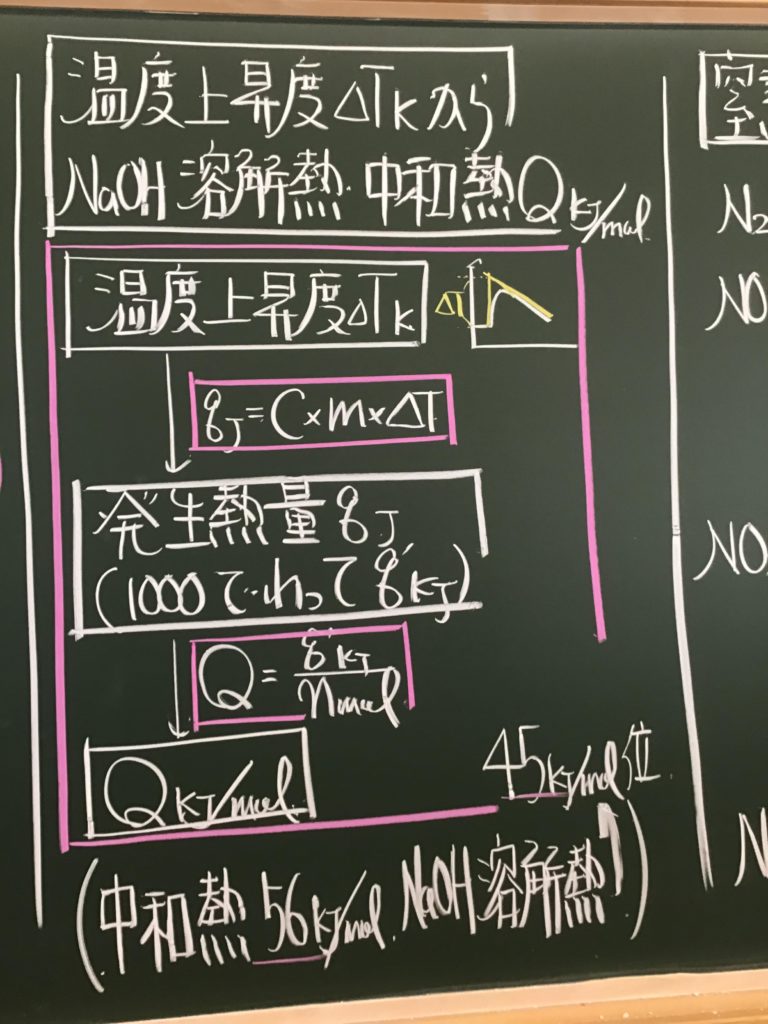 温度上昇度ΔTKから
NaOH溶解熱 中和熱QKJ/mol
温度上昇度ΔTK
ΔT
qJ=C×m×ΔT
発生熱量qJ
(1000でわってq'KJ)
Q=q'KJ/nmol
QKJ/mol
45KJ/mol位
(中和熱56KJ/mol NaOH溶解熱↑)
N2
NO
NO
N